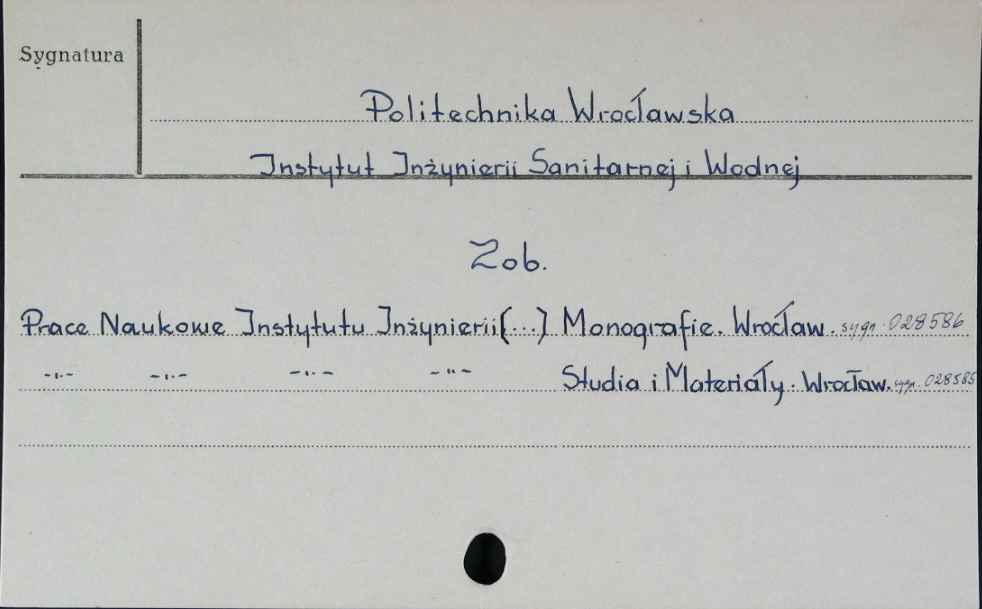 Sygnatura
Politechnika Wrocławska
Instytut Inżynierii Sanitarnej i Wodnej
Zob.
Prace Naukowe Instytutu Inżynierii [...] Monografie. Wrocław. sygn. 028586
-"- -"- -"- -"- Studia i Materiały. Wrocław. sygn. 028585